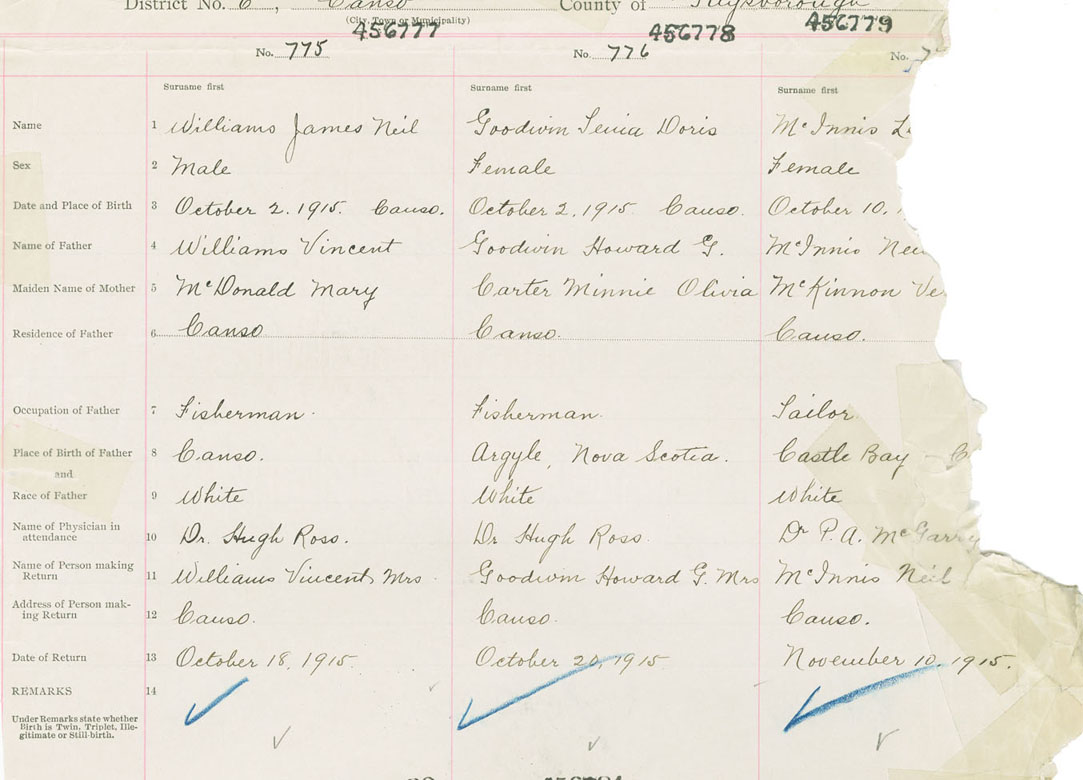 District No. 6, Canso County of Guysborough
(City, Town or Municipality)
456777 456778 456779
No. 775 No. 776 No. 7
Surname first Surname first Surname first
Name 1 Williams James Neil Goodwin Doris McInnis
Sex 2 Male Female Female
Date and Place of Birth 3 October 2. 1915. Canso. October 2, 1915. Canso. October 10,
Name of Father 4 Williams Vincent Goodwin Howard G. McInnis
Maiden Name of Mother 5 McDonald Mary Carter Minnie Olivia McKinnon
Residence of Father 6 Canso Canso. Canso.
Occupation of Father 7 Fisherman. Fisherman. Sailor
Place of Birth of Father 8 Canso. Argyle, Nova Scotia. Castle Bay - C
and
Race of Father 9 White White White
Name of Physician in
attendance 10 Dr. Hugh Ross. Dr Hugh Ross. Dr P. A. McGarry
Name of Person making
Return 11 Williams Vincent Mrs. Goodwin Howard G. Mrs McInnis Neil
Address of Person mak-
ing Return 12 Canso. Canso. Canso.
Date of Return 13 October 18, 1915. October 20, 1915. November 10, 1915.
REMARKS 14
Under Remarks state whether
Birth is Twin, Triplet, Ille-
gitimate or Still-birth.